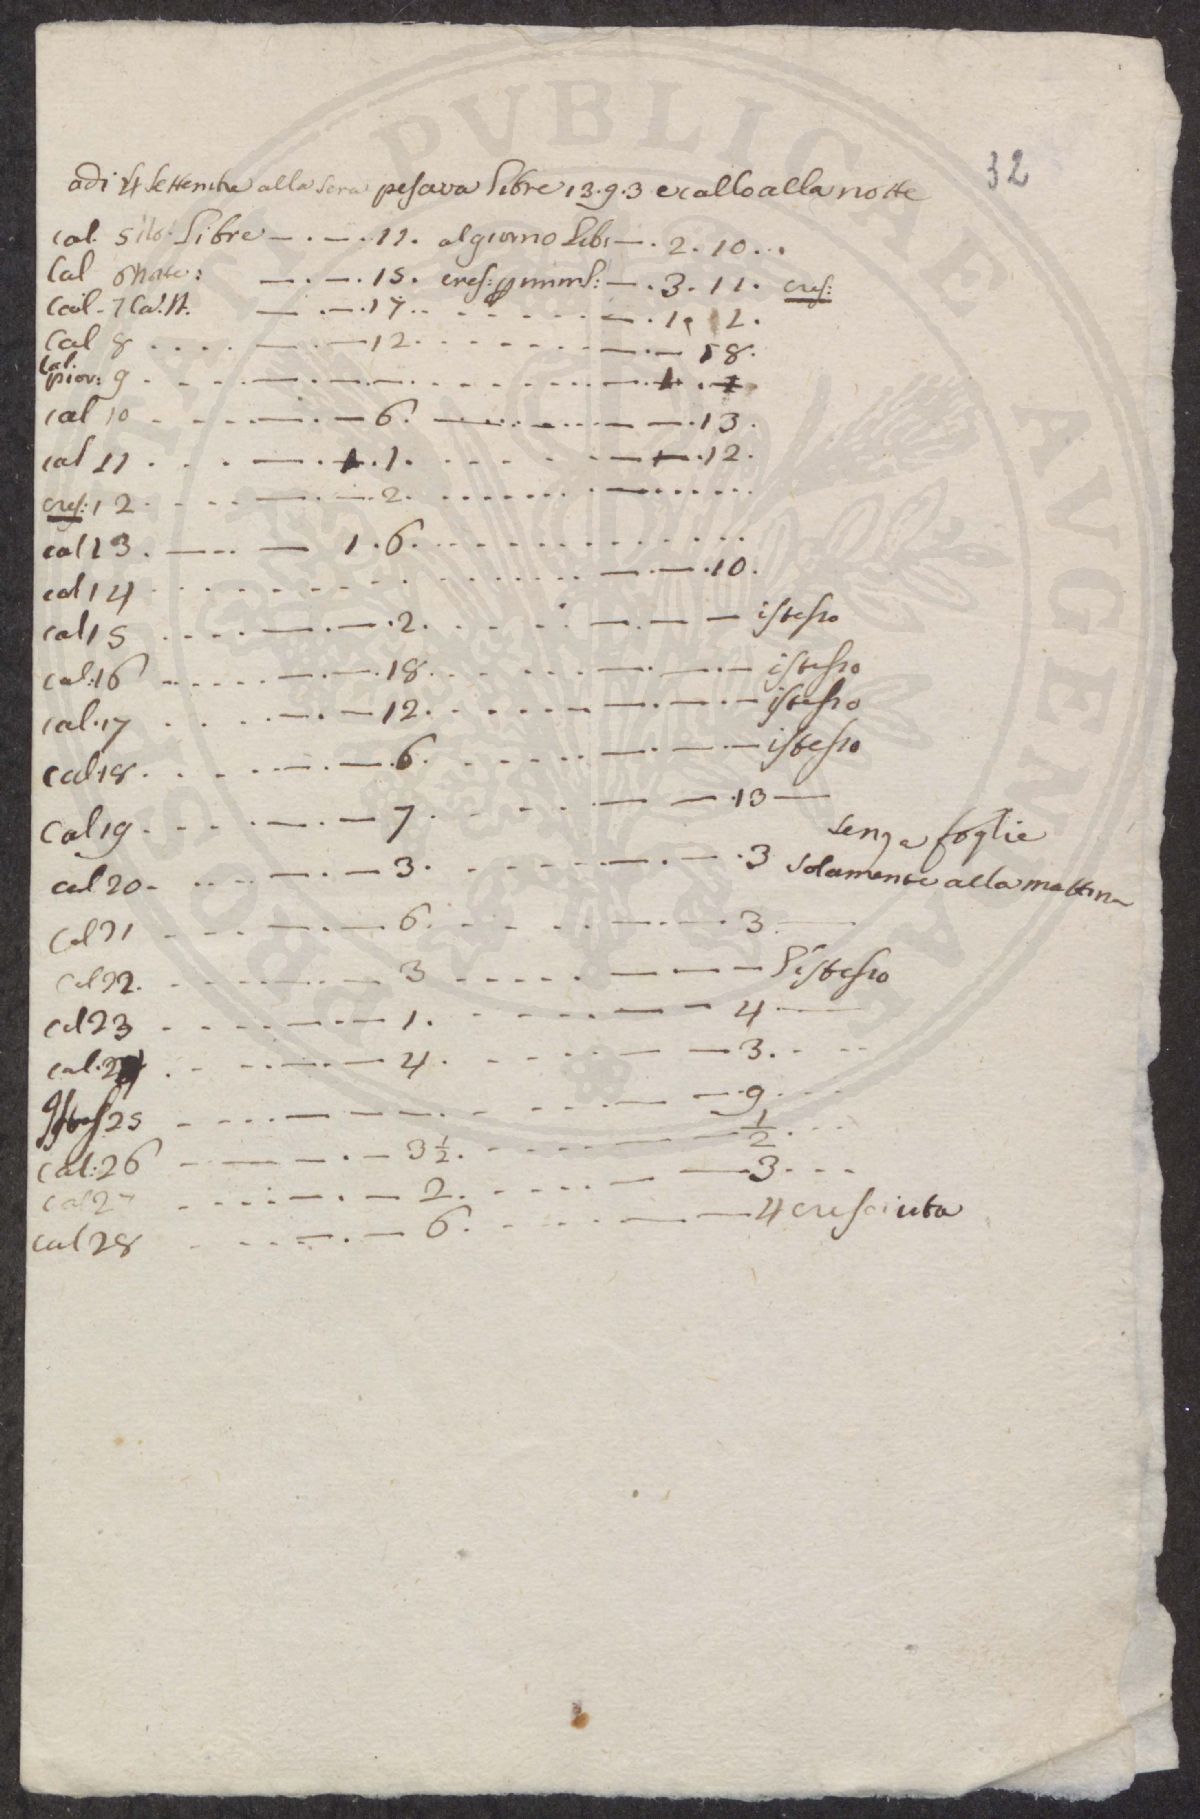 32
adi 4 Settembre alla sera pesava libre 13.9.3 e callo alla notte
cal. 5 libre — . — . 11. al giorno lib: — . 2. 10 . . .
Cal 6 notte: — . — . 15. cres: — . 3. 11. cres:
Cal. 7 — . — . 17 . . . . . . . — . 1. 2.
Cal 8 . . . . — . — 12 . . . . . . . — . — 18.
Cal.
piov: 9 . . . . — . — . — . . . . . . . — .
cal 10 . . . — . — 6. — . . . — . — 13.
cal 11 . . . — . 1. . . . . . — . 12.
cres: 12 . . . . — . — . 2. . . . . . . — . . . .
cal 13 . — . . — 1. 6. . . . . . . . . . . .
cal 14 . . . . . . . . . . . . . — . — . 10.
cal 15 . . . . — . — . 2. . . . . — . — — istesso
cal: 16 . . . . . — . — . 18. . . . . — . — . — istesso
cal. 17 . . . . — . — 12. . . . . — . — . — istesso
cal 18. . . . . — . — . 6. . . . . — . — — istesso
cal 19 . . . . — . — 7. . . . . — — . 13 —
senza foglie
cal 20 . . . . — . — 3. . . . . — . — . 3 solamente alla mattina
cal 21 . . . . — . — 6. . . . . — . — 3. —
cal 22. . . . . — . — 3 . . . . . — — — l'istesso
cal 23 . . . . — . — 1. . . . . — — 4 —
cal. 24 . . . . — . — 4. . . . . — — 3. . . .
25 . . . . — — — . . . . — — 9. . . .
cal: 26 — — — . — 3 1/2. . . . . — — 1/2. . . .
cal 27 . . . . — . — 2. . . . . — — 3. . . .
cal 28 . . . . — . — 6. . . . . — — 4 cresciuta
PRIVATAE PVBLICAE AVGENDAE